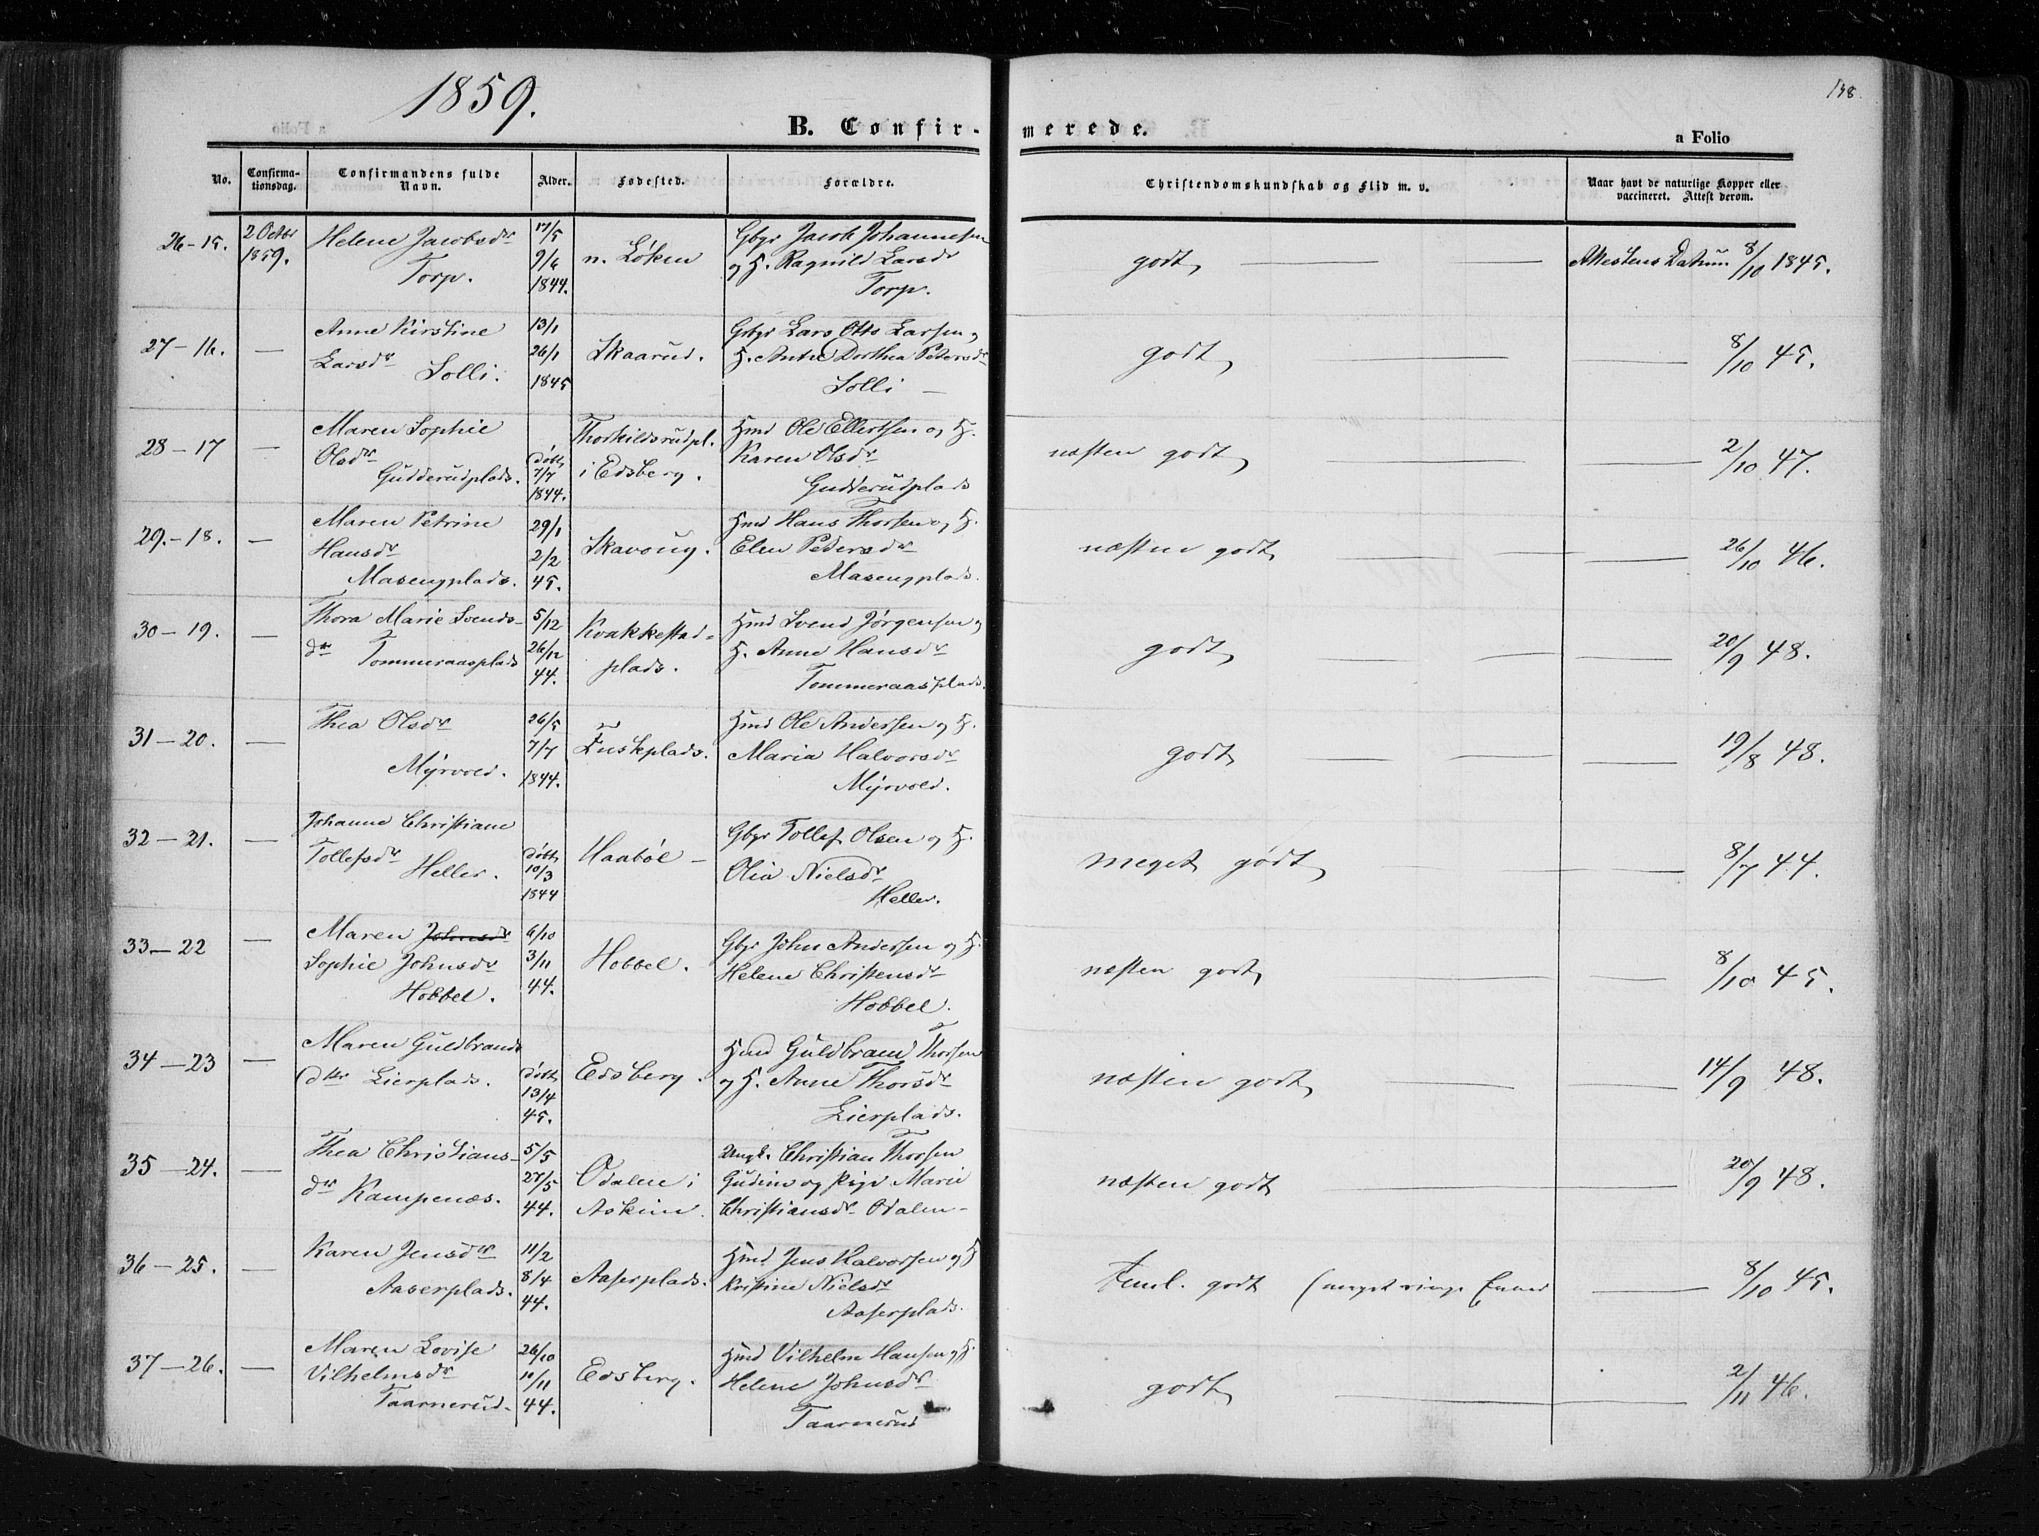 1859.
138.
B. Confir-
merede.
a Folio
No.
Confirma-
tionsdag.
Confirmandens fulde
Navn.
Alder.
Fødested.
Forældre.
Christendomskundskab og Flid m. v.
Naar havt de naturlige Kopper eller
vaccineret. Attest derom.
26-15.
2 Octbr
1859.
Helene Jacobsdr
Torp.
17/5
9/6
1844.
n. Løken
Gbgr Jacob Johannesen
og H. Ragnild Larsdr
Torp.
godt
Attestens Datum 8/10 1845.
27-16.
Anne Kirstine
Larsdr Solli.
13/1
26/1
1845
Skaarud.
Gbgr Lars Otto Larsen og
H. Anne Dorthea Pedersdr
Solli
godt
8/10 45.
28-17
Maren Sophie
Olsdr
Gudderudplads.
døbt
7/7
1844.
Thorkildsrudpl.
i Edsberg.
Hmd Ole Ellertsen og H.
Karen Olsdr
Gudderudplads
næsten godt
2/10 47.
29.-18.
Maren Petrine
Hansdr
Masengplads.
29/1
2/2
45.
Skavoug.
Hmd Hans Thorsen og H.
Elen Pedersdr
Masengplads.
næsten godt
26/10 46.
30-19.
Thora Marie Svends-
dr Tommeraasplads
5/12
26/12
44.
Kvakkestad-
plads.
Hmd Svend Jørgensen og
H. Anne Hansdr
Tommeraasplads.
godt
20/9 48.
31-20.
Thea Olsdr
Myrvold.
26/5
7/7
1844.
Fuskplads.
Hmd Ole Andersen og H.
Maria Halvorsdr
Myrvold.
godt
19/8 48.
32-21.
Johanne Christiane
Tollefsdr Heller.
døbt
10/3
1844
Haabøl
Gbgr Tollef Olsen og H.
Olia Nielsdr
Heller.
meget godt
8/7 44.
33-22
Maren Johnsdr
Sophie Johnsdr
Hobbel.
6/10
3/11
44.
Hobbel.
Gbgr John Andersen og H.
Helene Christensdr
Hobbel.
næsten godt
8/10 45.
34-23
Maren Guldbrands
dtr Lierplads.
døbt
13/4
45.
Edsberg.
Hmd Guldbrand Thorsen
og H. Anne Thorsdr
Lierplads.
næsten godt
14/9 48.
35-24.
Thea Christians-
dr Kampenæs.
5/5
27/5
44.
Odalen i
Askim.
Ungk. Christian Thorsen
Gudim og Pige Marie
Christiansdr Odalen-
næsten godt
20/9 48.
36-25.
Karen Jensdr
Aaserplads.
11/2
8/4
44.
Aaserplads.
Hmd Jens Halvorsen og H
Kristine Nielsdr
Aaserplads.
godt (meget ringe Evner
8/10 45.
37-26.
Maren Lovise
Vilhelmsdr
Taarnerud.
26/10
10/11
44.
Edsberg.
Hmd Vilhelm Hansen og H.
Helene Johnsdr
Taarnerud
godt
2/11 46.